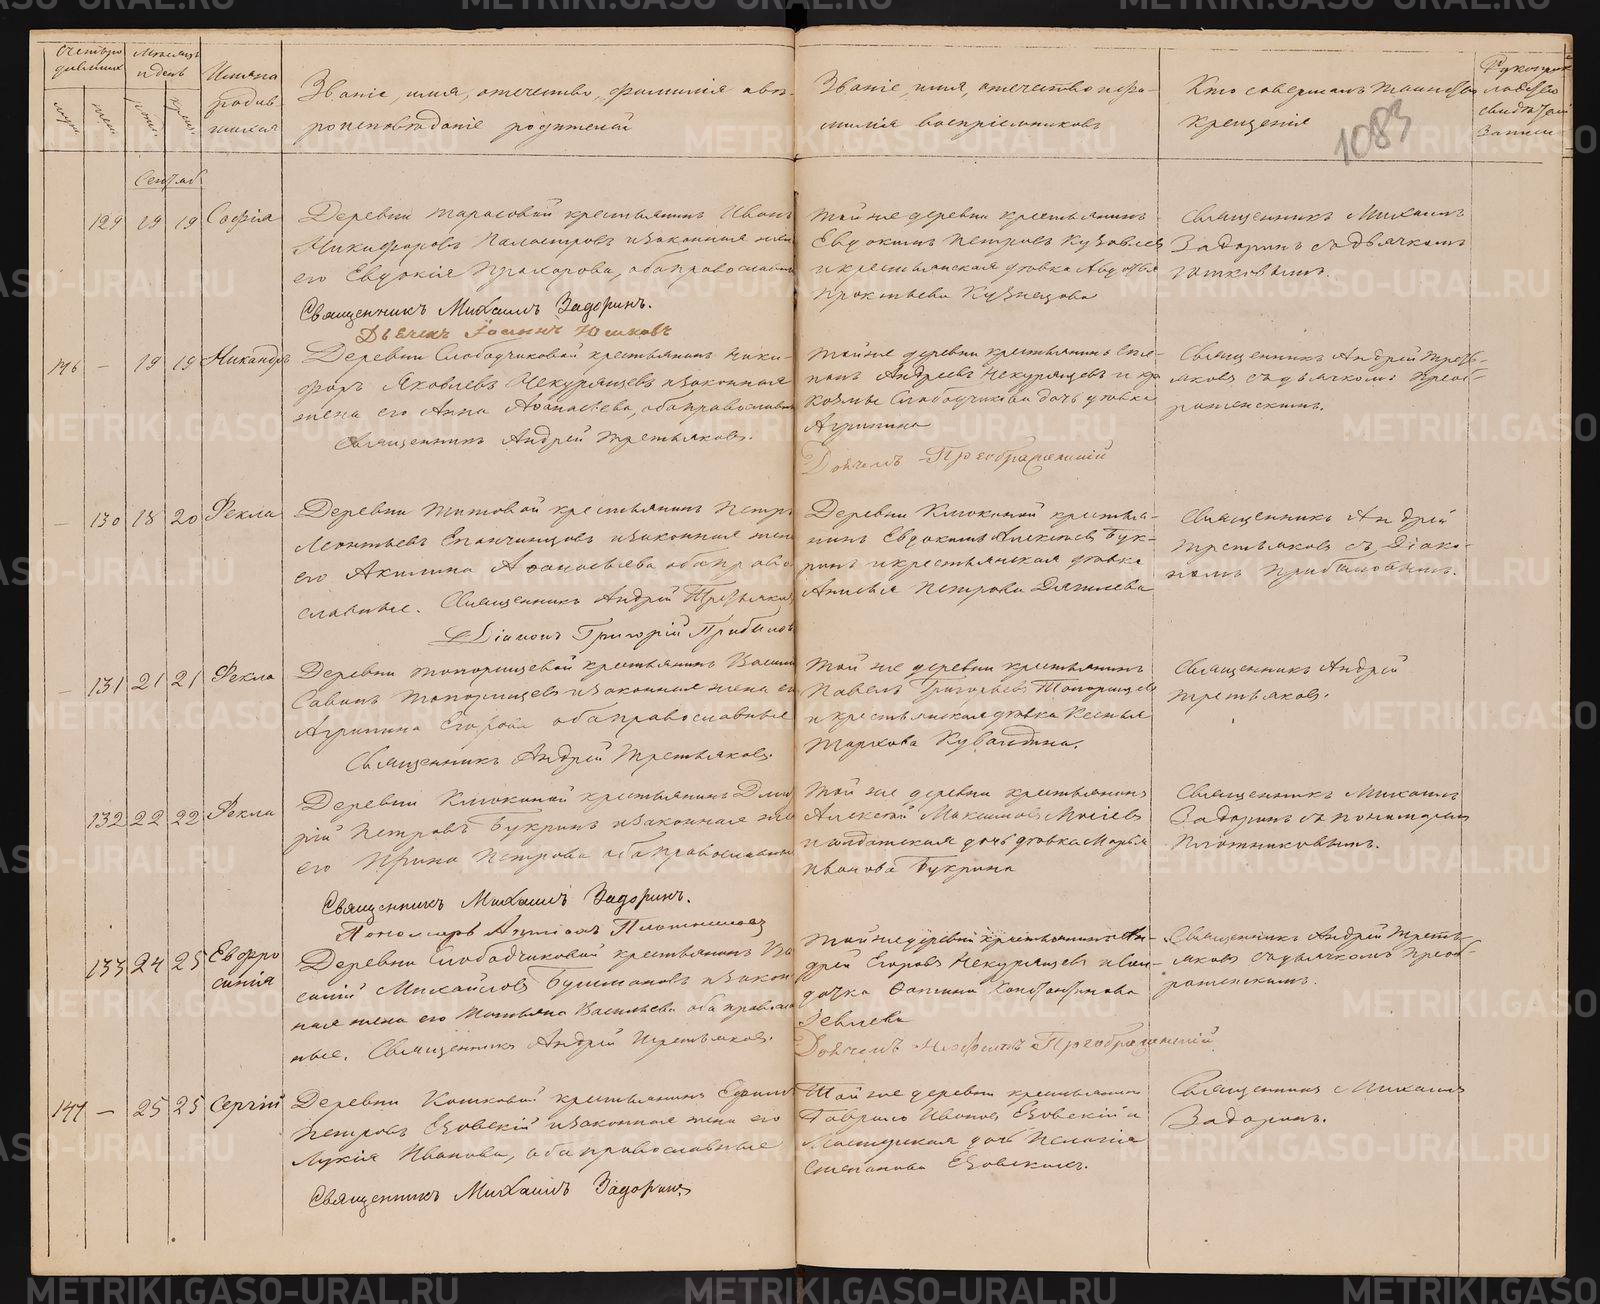 Счетъ ро-
дившихся
Мѣсяцъ
и день
Имена
родив-
шихся
Званіе, имя, отчество, фамилія и вѣ-
роисповѣданіе родителей
Званіе, имя, отчество и фа-
милія воспріемниковъ
Кто совершалъ таинство
крещенія
1083
Сентяб.
129 19 19 Софія
Деревни Тарасовой крестьянинъ Иванъ
Никифоровъ и законная жена
его Евдокія Прохорова, оба православные
Священникъ Михаилъ Задоринъ.
Дьячекъ Іоаннъ Юшковъ
Той же деревни крестьянинъ
Евдокимъ Петровъ
и крестьянская дѣвка Авдотья
Прокопьева Кузнецова
Священникъ Михаилъ
Задоринъ съ дьячкомъ
146 — 19 19 Никандръ
Деревни Слободчиковой крестьянинъ Ники-
форъ Яковлевъ Чекурящевъ и законная
жена его Анна Аѳанасьева, оба православные
Священникъ Андрей Третьяковъ.
Той же деревни крестьянинъ Сте-
панъ Андреевъ Чекурящевъ и кр.
Козмы Слободчикова дочь дѣвка
Агрипина
Дьячекъ Преображенскій
Священникъ Андрей Треть-
яковъ съ дьячкомъ Преоб-
раженскимъ.
— 130 18 20 Ѳекла
Деревни Титовой крестьянинъ Петръ
Леонтьевъ Епанчинцовъ и законная жена
его Акилина Аѳанасьева оба право-
славные. Священникъ Андрей Третьяковъ
Діаконъ Григорій Прибыловъ
Деревни Клюкиной крестья-
нинъ Евдокимъ Алексѣевъ Бук-
ринъ и крестьянская дѣвка
Анисья Петрова
Священникъ Андрей
Третьяковъ съ Діако-
номъ Прибыловымъ.
— 131 21 21 Ѳекла
Деревни Топорищевой крестьянинъ Василій
Савинъ Топорищевъ и законная жена его
Агрипина Егорова оба православные
Священникъ Андрей Третьяковъ.
Той же деревни крестьянинъ
Павелъ Григорьевъ Топорищевъ
и крестьянская дѣвка Ксенья
Маркова
Священникъ Андрей
Третьяковъ.
132 22 22 Ѳекла
Деревни Клюкиной крестьянинъ Дмит-
рій Петровъ Букринъ и законная жена
его Ирина Петрова оба православные
Священникъ Михаилъ Задоринъ.
Пономарь Плотниковъ
Той же деревни крестьянинъ
Алексѣй Максимовъ
и солдатская дочь дѣвка Марья
Иванова Букрина
Священникъ Михаилъ
Задоринъ съ пономаремъ
Плотниковымъ.
133 24 25 Евфро
синія
Деревни Слободчиковой крестьянинъ Ва-
силій Михайловъ и закон-
ная жена его Татьяна Васильева оба православ-
ные. Священникъ Андрей Третьяковъ.
Той же деревни крестьянинъ Ан-
дрей Егоровъ Чекурящевъ и сол-
датка Фотина Константинова
Дьячекъ Преображенскій
Священникъ Андрей Треть-
яковъ съ дьячкомъ Преоб-
раженскимъ.
147 — 25 25 Сергій
Деревни Кошковой крестьянинъ Ефимъ
Петровъ Езовскій и законная жена его
Лукія Иванова, оба православные
Священникъ Михаилъ Задоринъ
Той же деревни крестьянинъ
Гаврило Ивановъ Езовскій и
дочь Пелагія
Степанова
Священникъ Михаилъ
Задоринъ.
METRIKI.GASO-URAL.RU